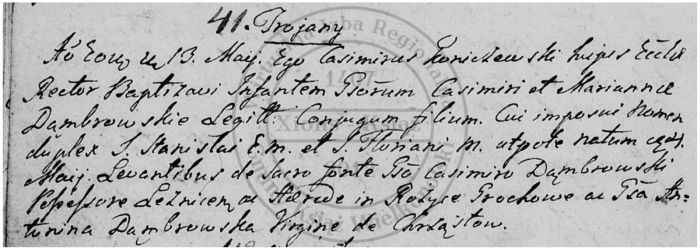 41. Trojany
Ao Eodem 13. Maij. Ego Casimirus hujus Eccl.
Rector Baptizavi Infantem Gsorum Casimiri et Mariannæ
Dambrowskie Legitt: Conjugum filium. Cui imposui Nomen
duplex S. Stanislai E. m. et S. Floriani M. utpote natum
Maij. Levantibus de Sacro fonte Gso Casimiro Dąmbrowski
Possessore ac Hærede in Rożyce Prochowe ac Gsa An-
tonina Dąmbrowska Virgine de Chrząstow.